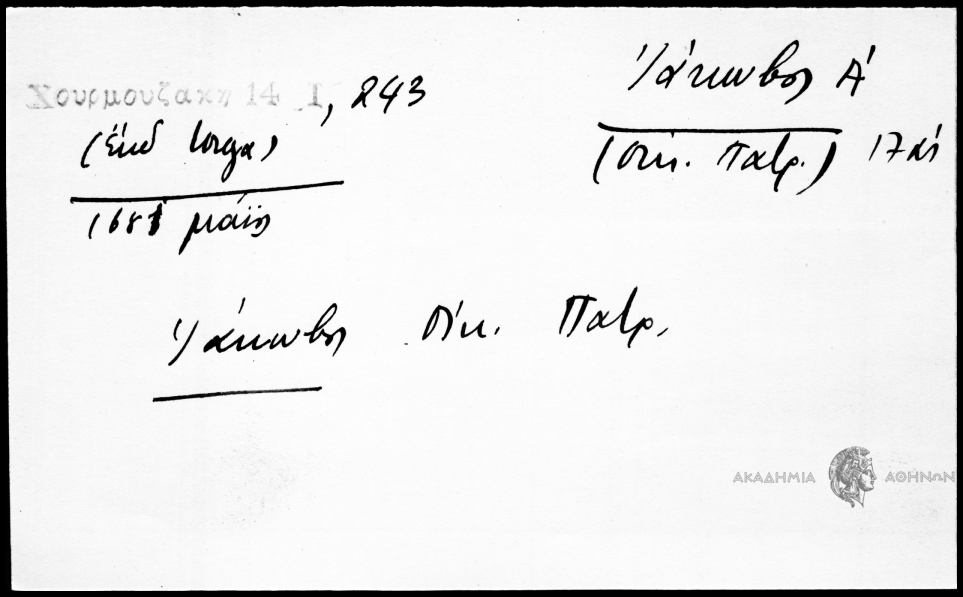 Χουρμουζάκη 14 I, 243
(ἔκδ Iorga)
1681 μάϊος
Ἰάκωβος Α'
(Οἰκ. Πατρ.) 17 αἰ
Ἰάκωβος Οἰκ. Πατρ.
ΑΚΑΔΗΜΙΑ ΑΘΗΝΩΝ